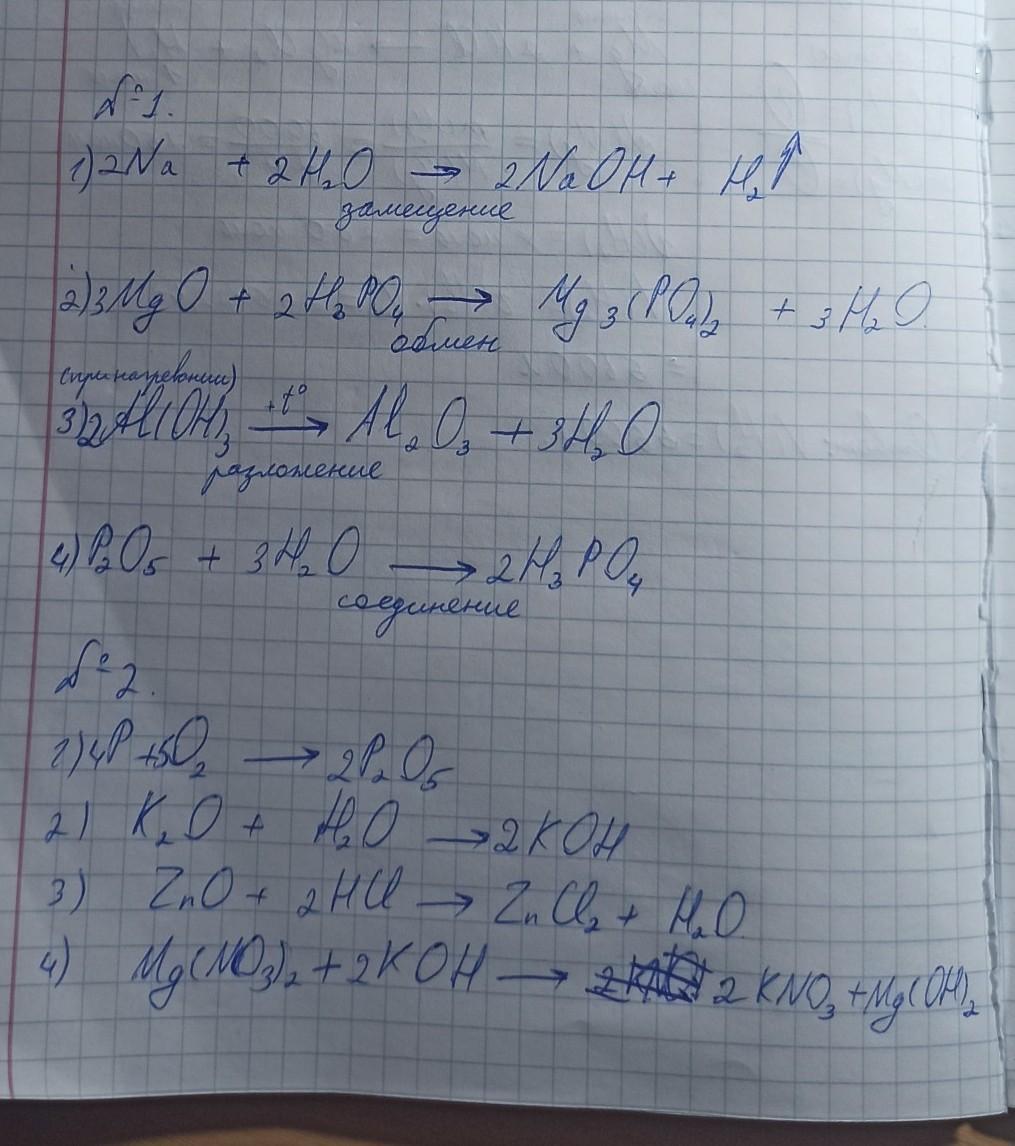 №1.
1) 2Na + 2H₂O → 2NaOH + H₂↑
замещение
2) 3MgO + 2H₃PO₄ → Mg₃(PO₄)₂ + 3H₂O.
обмен
(при нагревании)
3) 2Al(OH)₃ +t° → Al₂O₃ + 3H₂O
разложение
4) P₂O₅ + 3H₂O → 2H₃PO₄
соединение
№2.
1) 4P + 5O₂ → 2P₂O₅
2) K₂O + H₂O → 2KOH
3) ZnO + 2HCl → ZnCl₂ + H₂O.
4) Mg(NO₃)₂ + 2KOH → 2KNO₃ + Mg(OH)₂